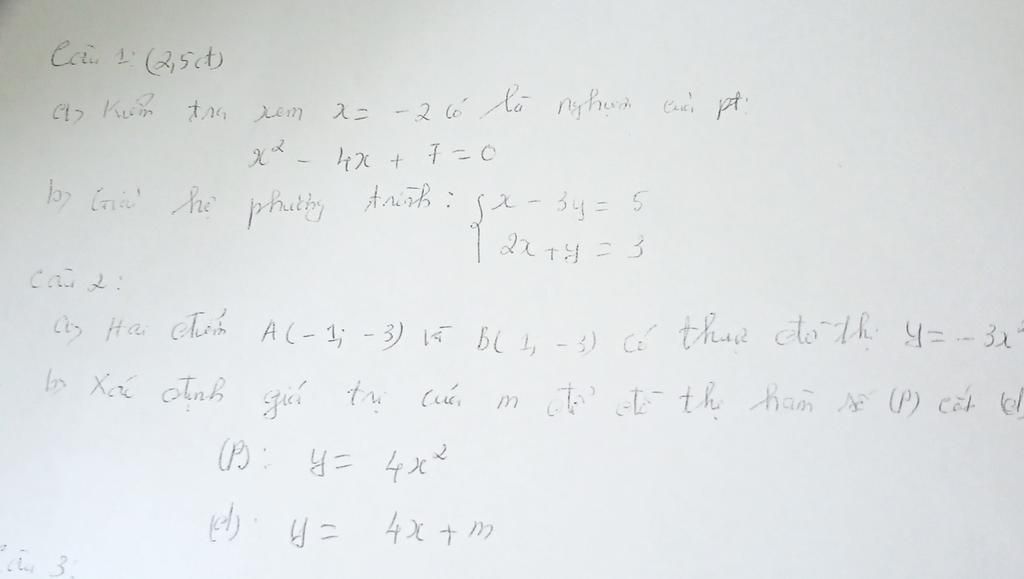 Câu 1: (2,5đ)
a, Kiểm tra xem x = -2 có là nghiệm của pt:
x² - 4x + 7 = 0
b, Giải hệ phương trình: { x - 3y = 5
2x + y = 3
Câu 2:
a, Hai điểm A(-1; -3) và B(1; -3) có thuộc đồ thị y = -3x²
b, Xác định giá trị của m để đồ thị hàm số (P) cắt (d)
(P): y = 4x²
(d): y = 4x + m
Câu 3: